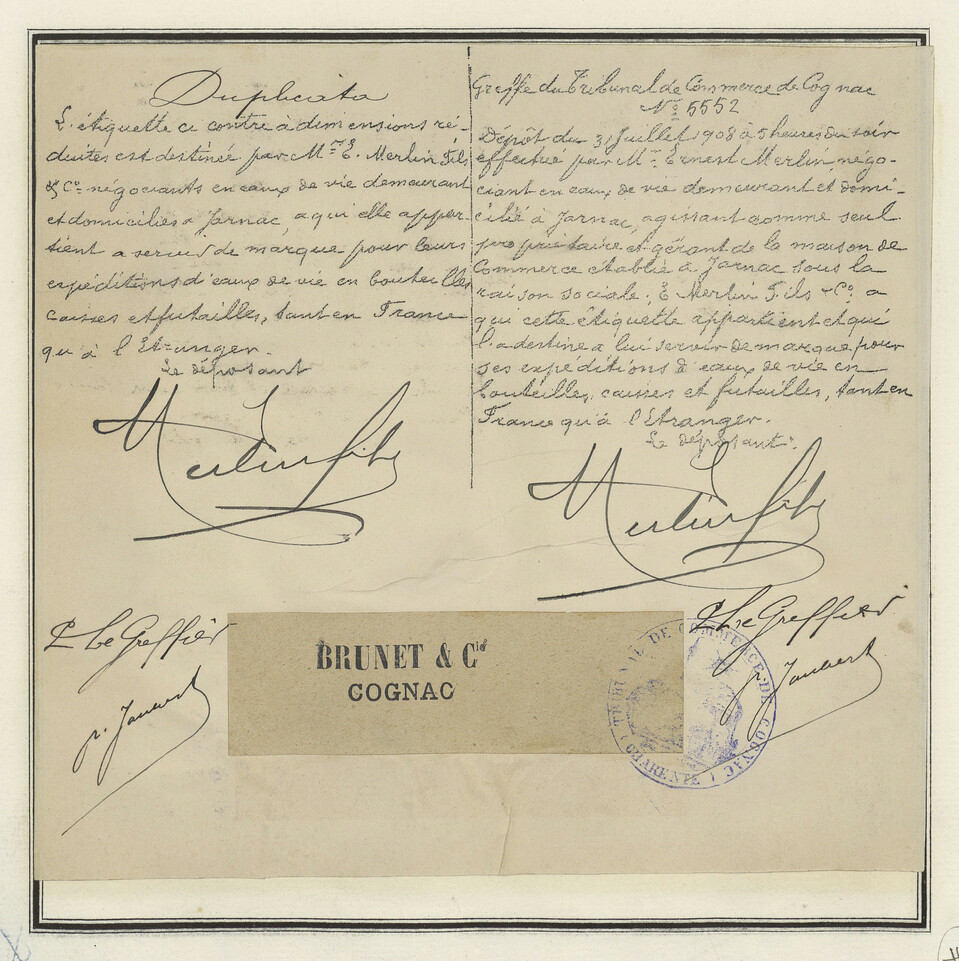 Duplicata
L'étiquette ci contre à dimensions ré-
duites est destinée par Mr E. Merlin Fils
& Co négociants en eaux de vie demeurant
et domiciliés a Jarnac, a qui elle appar-
tient a servir de marque pour leurs
expéditions d'eaux de vie en bouteilles
caisses et futailles, tant en France
qu'à l'Etranger.
Le déposant
Merlin fils
P Le Greffier
p. Jaubert
Greffe du Tribunal de Commerce de Cognac
No 5552
Dépôt du 3 Juillet 1908 à 5 heures du soir
effectué par Mr Ernest Merlin négo-
ciant en eaux de vie demeurant et domi-
cilié à Jarnac, agissant comme seul
propriétaire et gérant de la maison de
Commerce établie à Jarnac sous la
raison sociale: E Merlin Fils & Co a
qui cette étiquette appartient et qui
l'a destine a lui servir de marque pour
ses expéditions d'eaux de vie en
bouteilles, caisses et futailles, tant en
France qu'à l'Etranger.
Le déposant.
Merlin fils
P Le Greffier
p. Jaubert
BRUNET & Cie
COGNAC
TRIBUNAL DE COMMERCE DE COGNAC (CHARENTE)